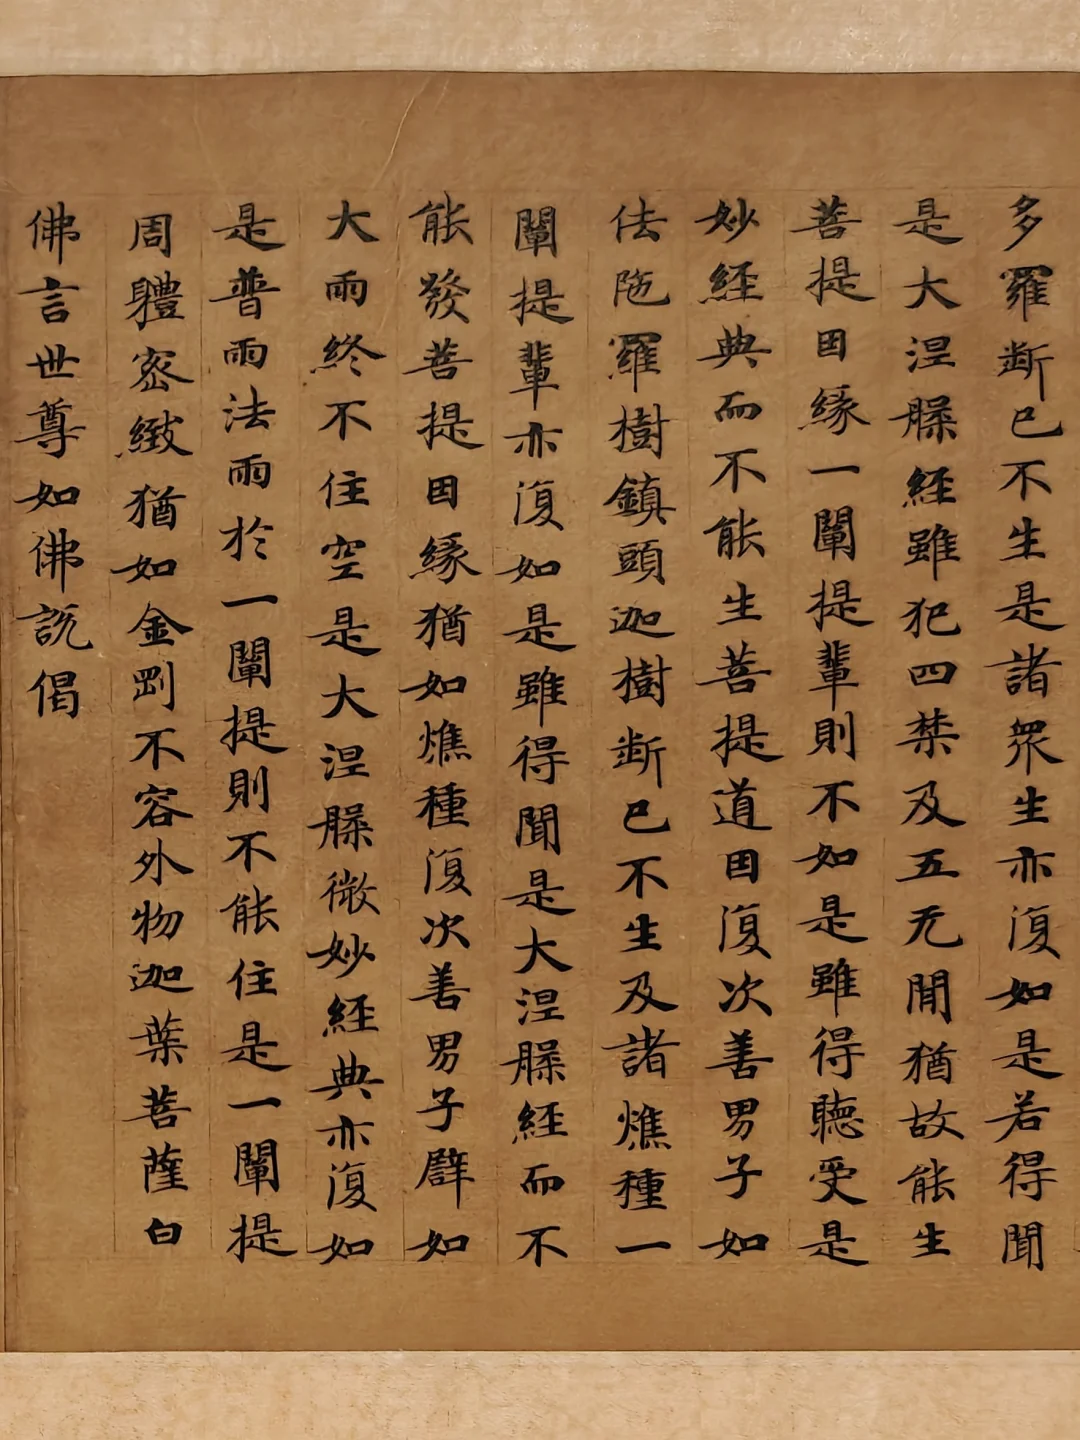 多羅断已不生是諸眾生亦復如是若得聞
是大涅槃經雖犯四禁及五无間猶故能生
菩提因緣一闡提輩則不如是雖得聽受是
妙經典而不能生菩提道因復次善男子如
佉陁羅樹鎮頭迦樹断已不生及諸燋種一
闡提輩亦復如是雖得聞是大涅槃經而不
能發菩提因緣猶如燋種復次善男子辟如
大雨終不住空是大涅槃微妙經典亦復如
是普雨法雨於一闡提則不能住是一闡提
周體密緻猶如金剛不容外物迦葉菩薩白
佛言世尊如佛説偈